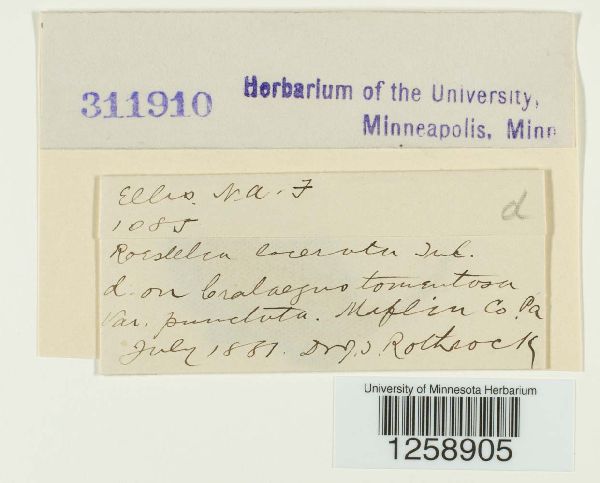 311910
Herbarium of the University,
Minneapolis, Minn
Ellis. N. A. F
d
1085
Roestelia lacerata
d. on Crataegus tomentosa
Var. punctata. Mifflin Co. Pa
July 1881. Dr J. T. Rothrock
University of Minnesota Herbarium
1258905